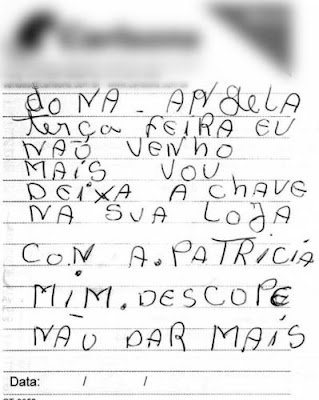 doNA - ANgeLA
terça FEIRA EU
NAÕ VENHO
MAIS VOU
DEIXA A CHAVE
NA SUA LOJA
CON A. PATRICIA
MIM. DESCOPE
NÃO DAR MAIS
Data: / /